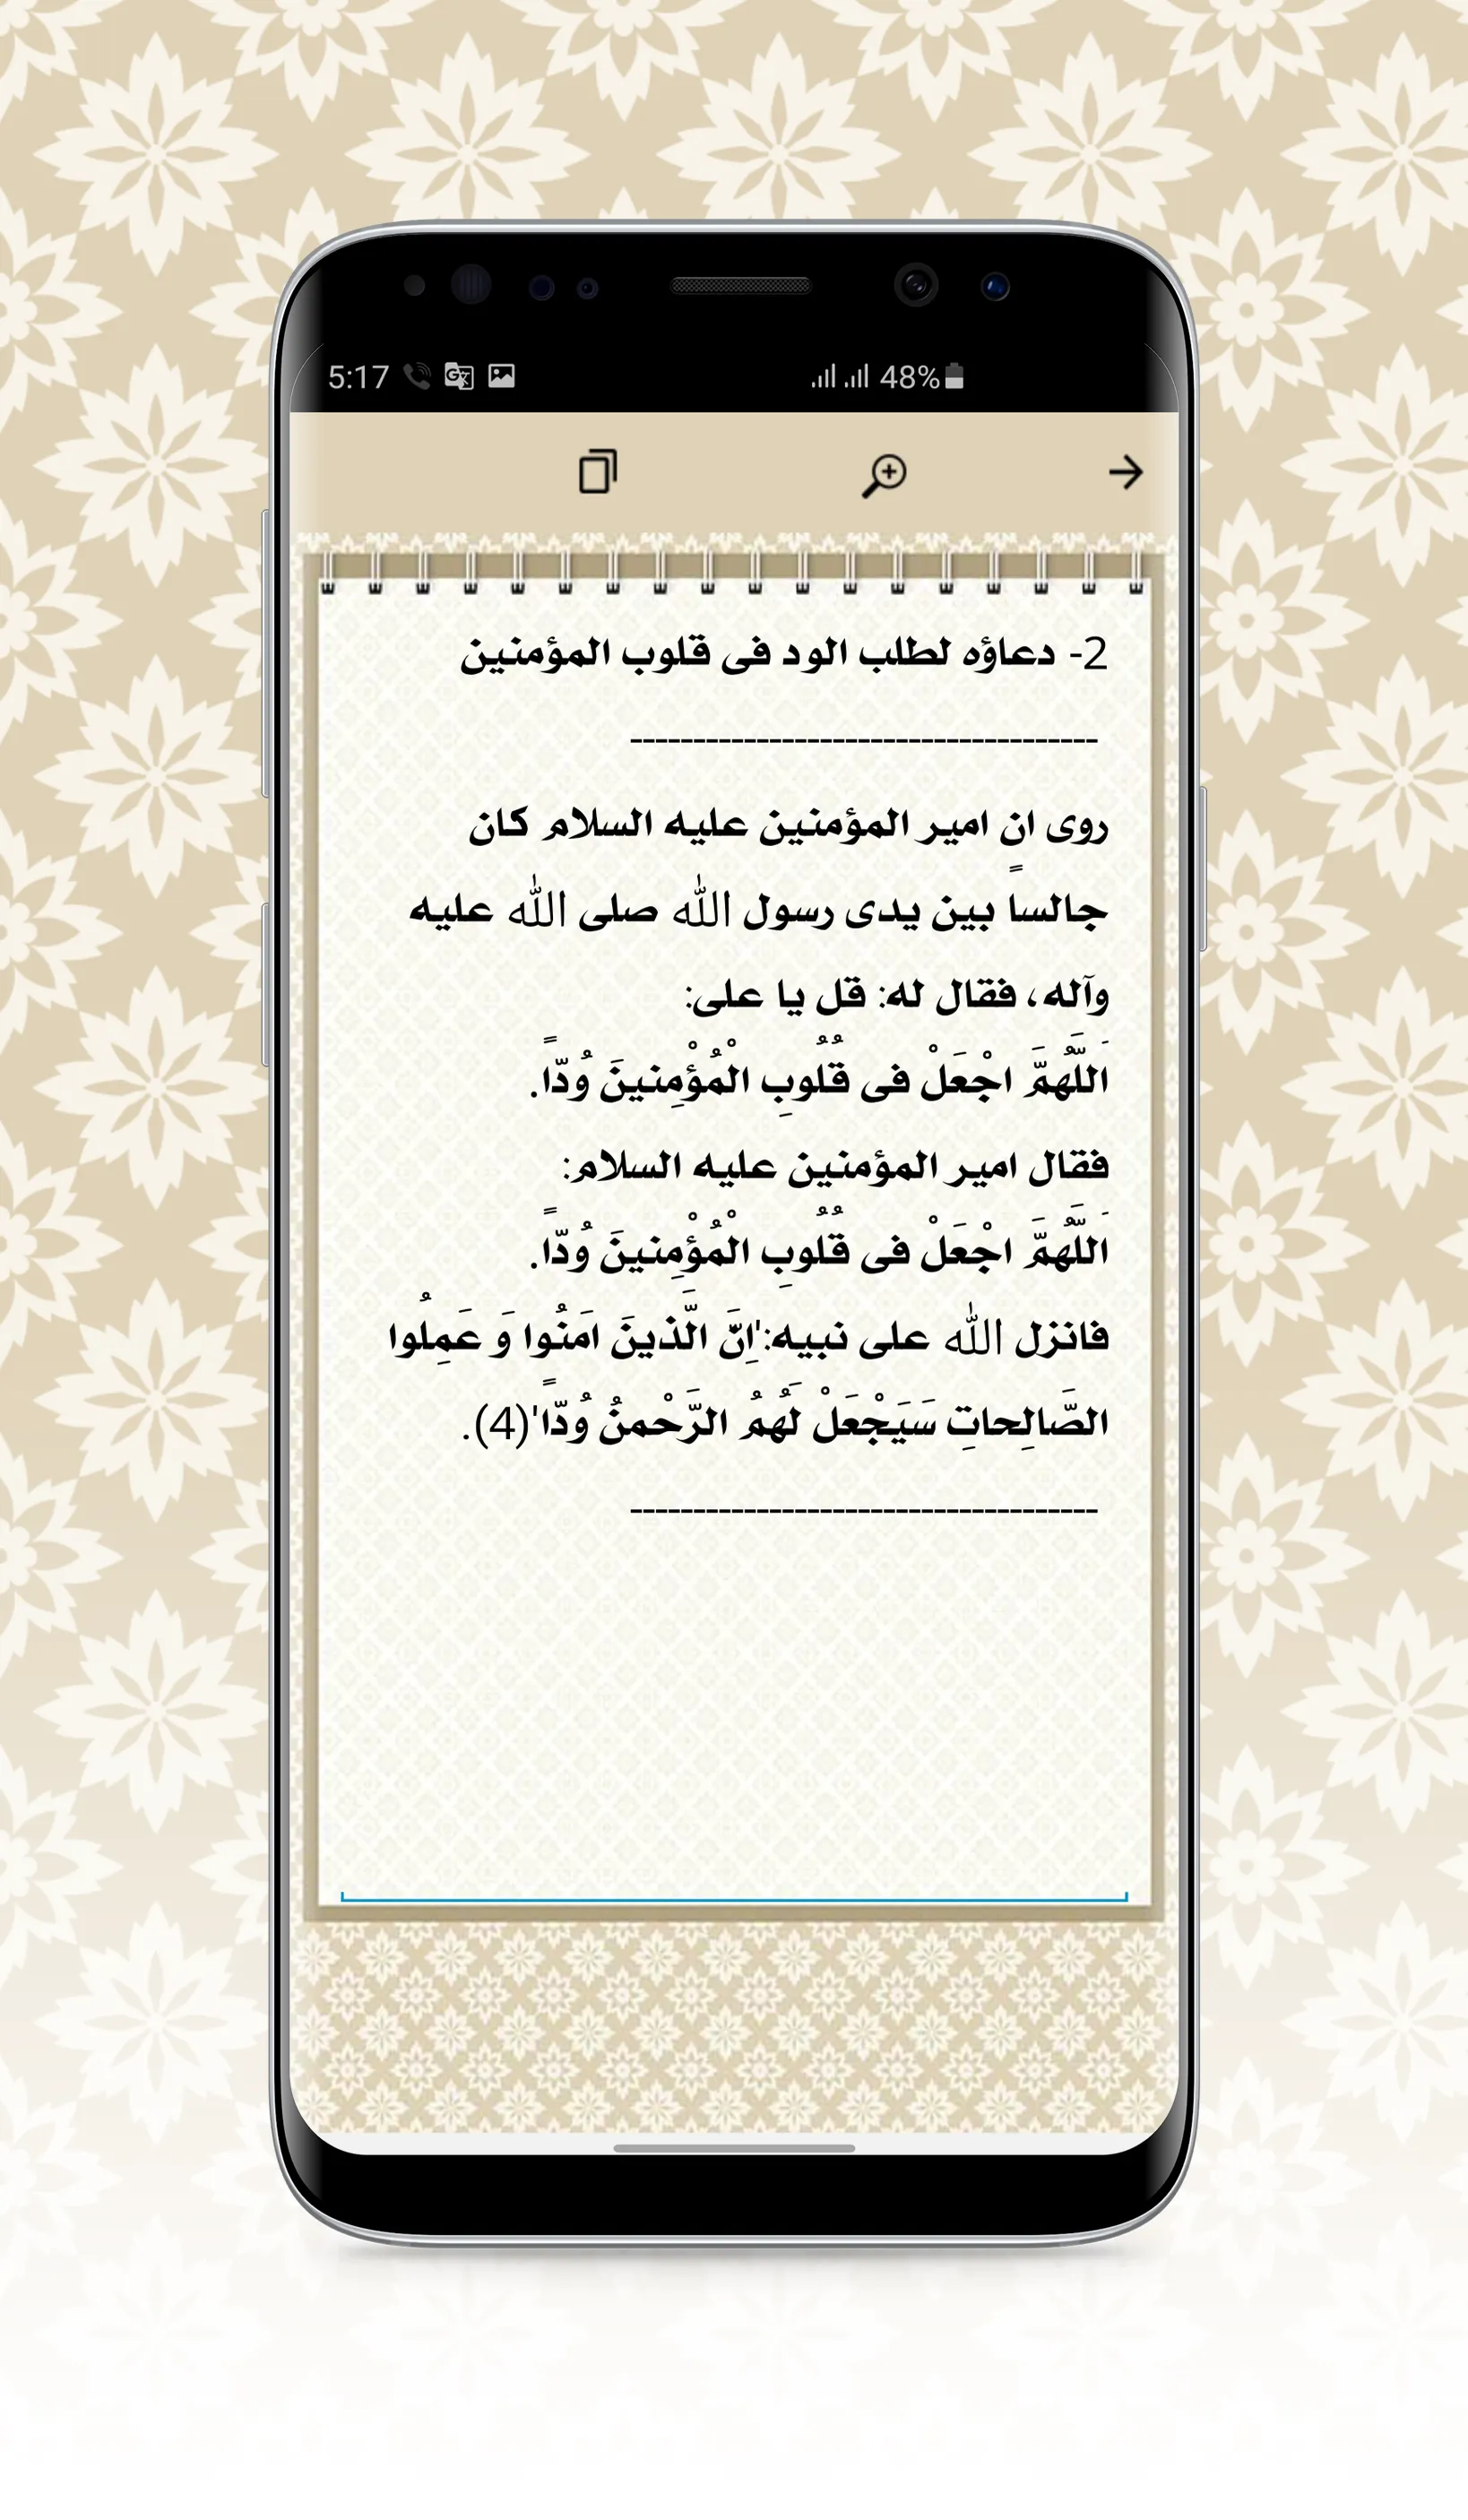 5:17
48%
2- دعاؤه لطلب الود فى قلوب المؤمنين
-------------------------------------
روى ان امير المؤمنين عليه السلام كان
جالساً بين يدى رسول الله صلى الله عليه
وآله، فقال له: قل يا على:
اَللَّهُمَّ اجْعَلْ فى قُلُوبِ الْمُؤْمِنينَ وُدّاً.
فقال امير المؤمنين عليه السلام:
اَللَّهُمَّ اجْعَلْ فى قُلُوبِ الْمُؤْمِنينَ وُدّاً.
فانزل الله على نبيه:'اِنَّ الَّذينَ امَنُوا وَ عَمِلُوا
الصَّالِحاتِ سَيَجْعَلْ لَهُمُ الرَّحْمنُ وُدّاً'(4).
-------------------------------------